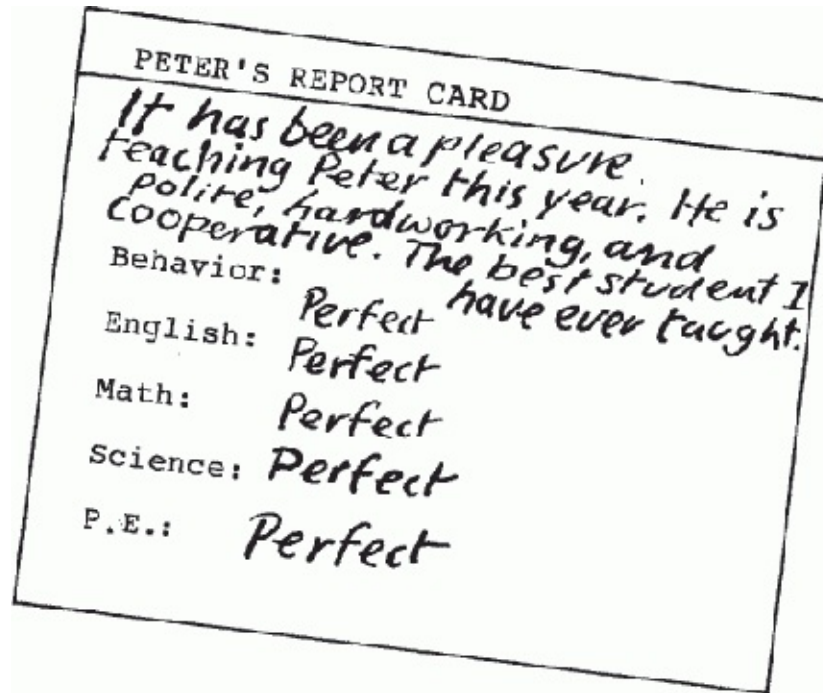 PETER'S REPORT CARD
It has been a pleasure
teaching Peter this year. He is
polite, hardworking, and
cooperative. The best student I
have ever taught.
Behavior: Perfect
English: Perfect
Math: Perfect
Science: Perfect
P.E.: Perfect